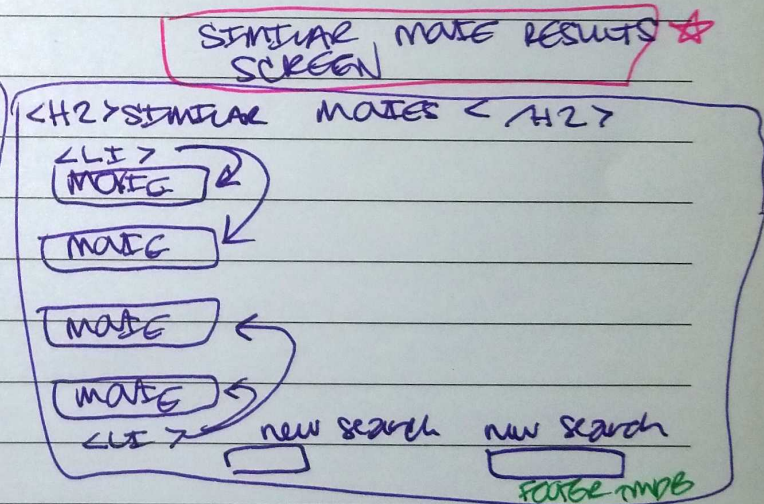 SIMILAR MOVIE RESULTS
SCREEN
<H2>SIMILAR MOVIES </H2>
<LI>
MOVIE
MOVIE
MOVIE
MOVIE
<LI>
new search new search
FOOTER TMDB